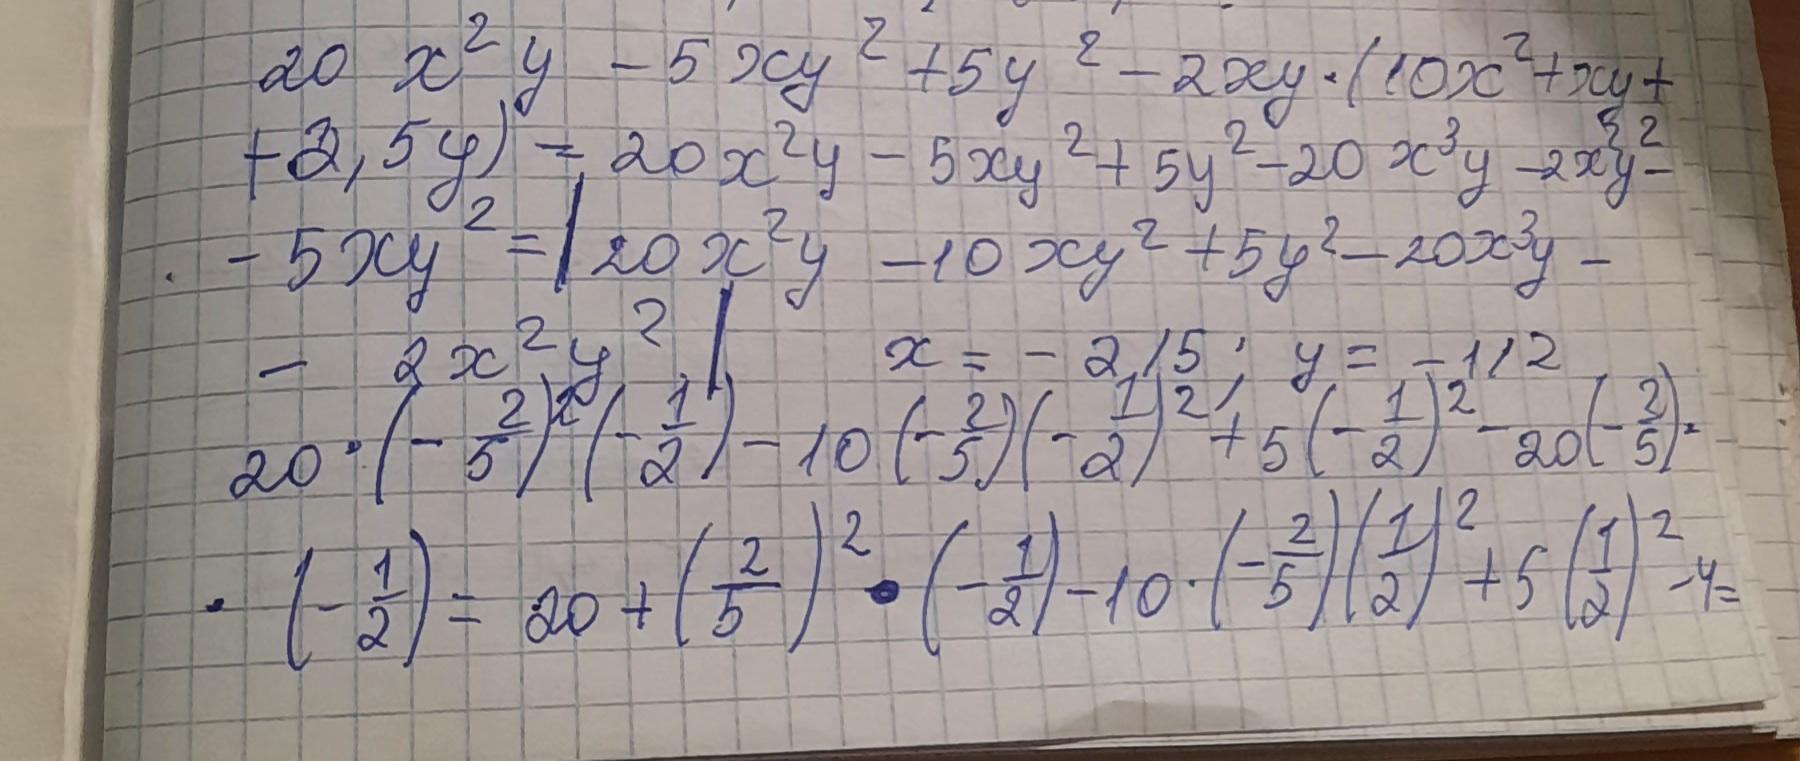 20 x² y - 5 xy² + 5y² - 2xy · (10x² + xy +
+ 2,5y) = 20x²y - 5xy² + 5y² - 20x³y - 2x²y² -
- 5xy² = | 20x²y - 10xy² + 5y² - 20x³y -
- 2x²y² | x = - 2/5; y = - 1/2
20 · (- 2/5)² (- 1/2) - 10 (- 2/5) (- 1/2)² + 5 (- 1/2)² - 20 (- 2/5) ·
· (- 1/2) = 20 + (2/5)² · (- 1/2) - 10 · (- 2/5) (1/2)² + 5 (1/2)² - 4 =